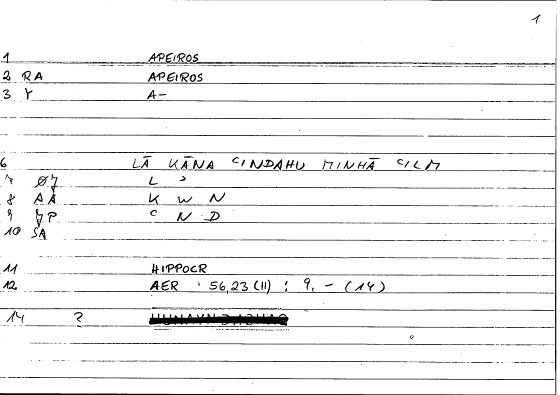 1
1 APEIROS
2 RA APEIROS
3 Y A-
6 LĀ KĀNA ʿINDAHU MINHĀ ʿILM
7 ØJ L ʾ
8 AA K W N
9 JP ʿ N D
10 SA
11 HIPPOCR
12 AER 56,23 (11) : 9, - (14)
14 ?